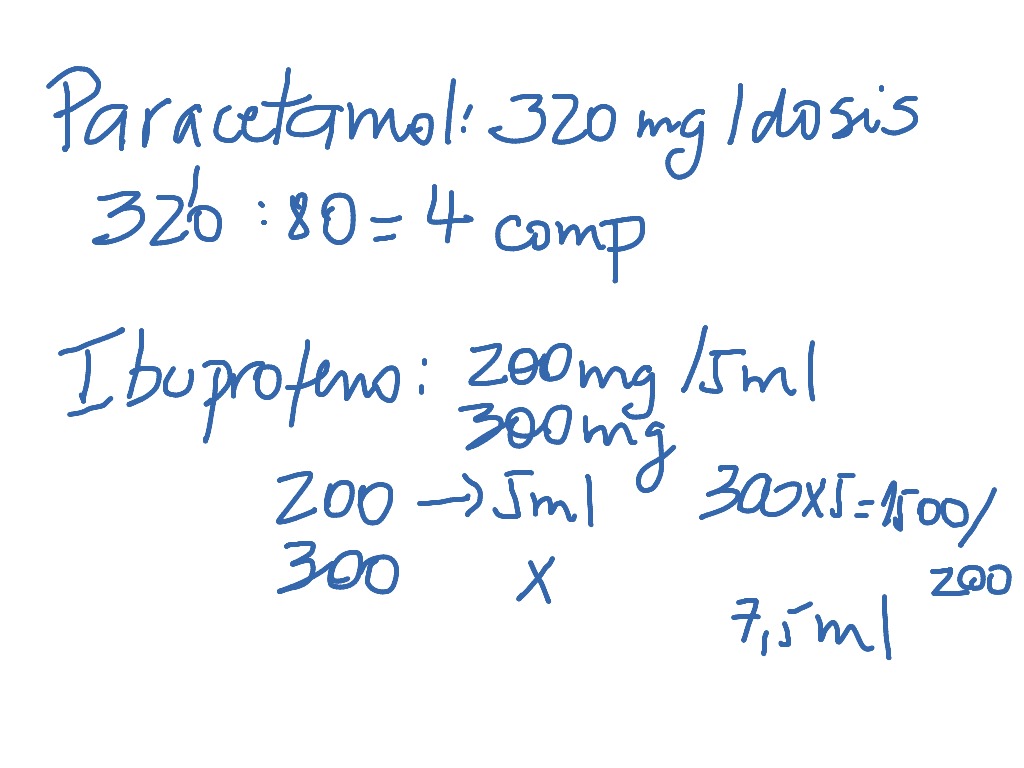 Paracetamol: 320 mg / dosis
320 : 80 = 4 comp
Ibuprofeno: 200mg /5ml
300mg
200 → 5ml 300x5=1500/
300 x 200
7,5ml